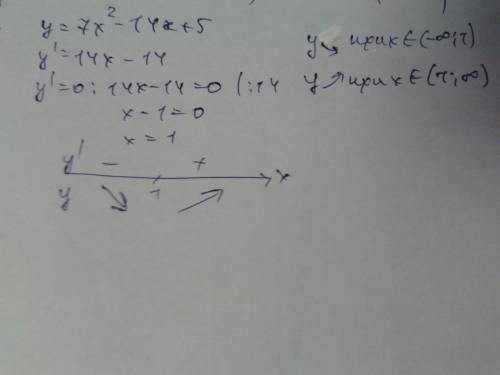 y = 7x² - 14x + 5
y' = 14x - 14
y' = 0 : 14x - 14 = 0 (: 14
x - 1 = 0
x = 1
y' - + x
y ↘ 1 ↗
y ↘ при x ∈ (-∞; 1)
y ↗ при x ∈ (1; ∞)